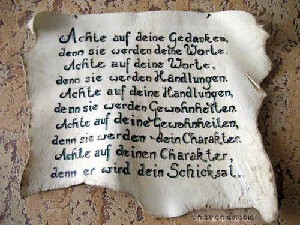 Achte auf deine Gedanken,
denn sie werden deine Worte.
Achte auf deine Worte,
denn sie werden Handlungen.
Achte auf deine Handlungen,
denn sie werden Gewohnheiten.
Achte auf deine Gewohnheiten,
denn sie werden dein Charakter.
Achte auf deinen Charakter,
denn er wird dein Schicksal.